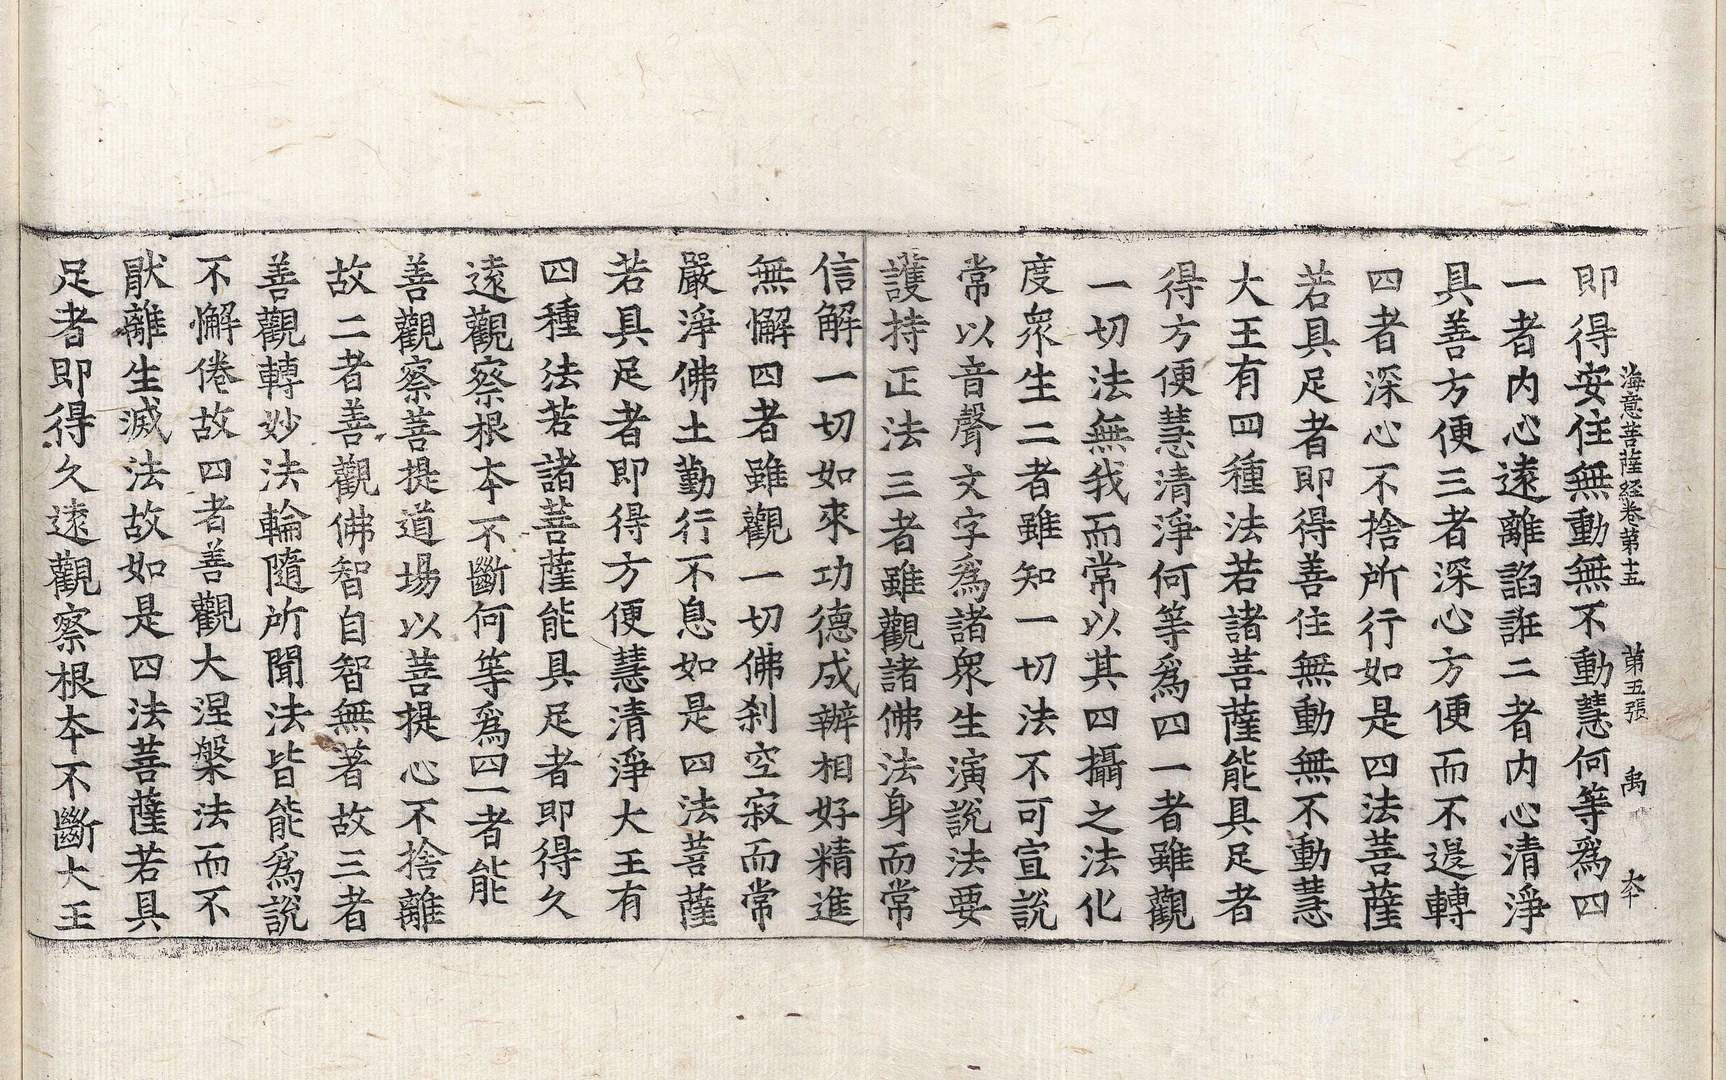 海意菩薩経卷第十五　第五張　禹　夲
即得安住無動無不動慧何等爲四
一者内心遠離諂誑二者内心清淨
具善方便三者深心方便而不退轉
四者深心不捨所行如是四法菩薩
若具足者即得善住無動無不動慧
大王有四種法若諸菩薩能具足者
得方便慧清淨何等爲四一者雖觀
一切法無我而常以其四攝之法化
度衆生二者雖知一切法不可宣說
常以音聲文字爲諸衆生演說法要
護持正法三者雖觀諸佛法身而常
信解一切如來功德成辦相好精進
無懈四者雖觀一切佛刹空寂而常
嚴淨佛土勤行不息如是四法菩薩
若具足者即得方便慧清淨大王有
四種法若諸菩薩能具足者即得久
遠觀察根夲不斷何等爲四一者能
善觀察菩提道場以菩提心不捨離
故二者善觀佛智自智無著故三者
善觀轉妙法輪隨所聞法皆能爲說
不懈倦故四者善觀大涅槃法而不
猒離生滅法故如是四法菩薩若具
足者即得久遠觀察根夲不斷大王